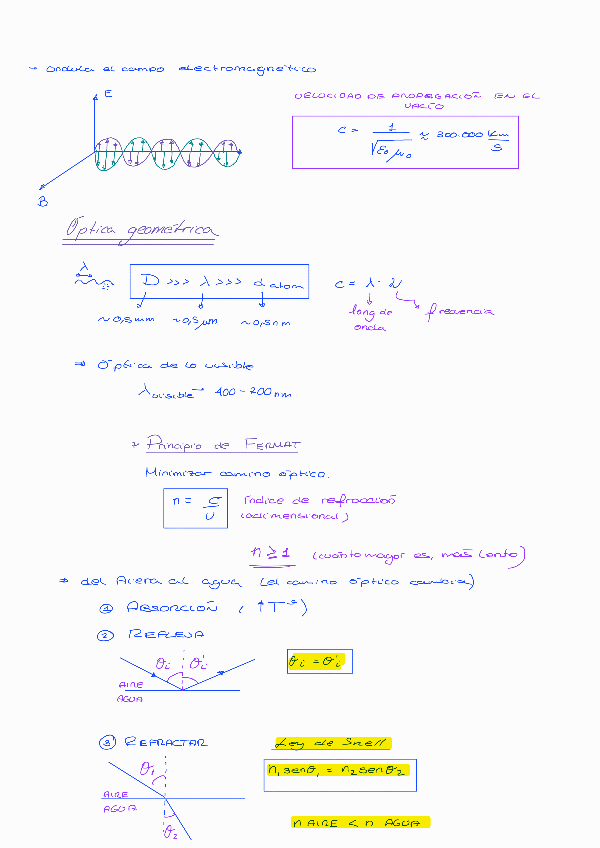 → Ondula el campo electromagnético
E
B
VELOCIDAD DE PROPAGACIÓN EN EL
VACÍO
c = 1/√ε₀μ₀ ≈ 300.000 Km/s
Óptica geométrica
λ
D >>> λ >>> d atom
~0,5mm ~0,5μm ~0,5nm
c = λ · ν
long de
onda
frecuencia
⇒ Óptica de lo visible
λvisible → 400-700nm
Principio de FERMAT
Minimizar camino óptico.
n = c/v
índice de refracción
(adimensional)
n ≥ 1 (cuanto mayor es, más lento)
⇒ del Aire al agua (el camino óptico cambia)
① ABSORCIÓN (↑Tª)
② REFLEJA
θi θi'
AIRE
AGUA
θi = θi'
③ REFRACTAR
θ1
AIRE
AGUA
θ2
Ley de Snell
n₁senθ₁ = n₂senθ₂
n AIRE < n AGUA